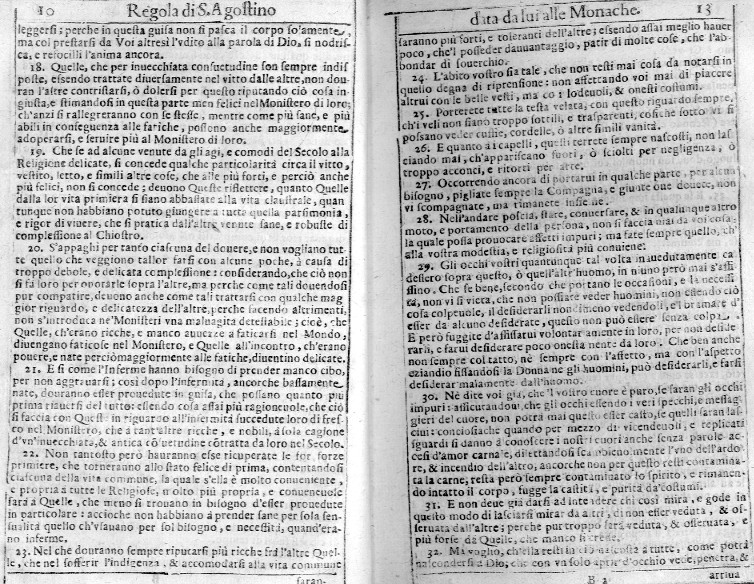 10 Regola di S. Agostino
leggersi; perche in questa guisa non si pasca il corpo so'amente,
ma col prestarsi da Voi altresi l'vdito alla parola di Dio, si nodrisca,
e rofocilli l'anima ancora.
18. Quelle, che per inuecchiata consuetudine son sempre indisposte,
essendo trattate diuersamente nel vitto dalle altre, non douran
l'altre contristarsi, ò dolersi per questo riputando ciò cosa ingiusta,
e stimandosi in questa parte men felici nel Monistero di loro;
ch'anzi si rallegreranno con se stesse, mentre come più sane, e più
abili in conseguenza alle fatiche, possono anche maggiormente
adoperarsi, e seruire più al Monistero di loro.
19. Che se ad alcune venute da gli agi, e comodi del Secolo alla
Religione delicate, si concede qualche particolarità circa il vitto,
vestito, letto, e simili altre cose, che alle più forti, e perciò anche
più felici, non si concede; deuono Queste riflettere, quanto Quelle
dalla lor vita primiera si siano abbassate alla vita claustrale, quantunque
non habbiano potuto giungere a tutta quella parsimonia,
e rigor di viuere, che si pratica dall'altre venute sane, e robuste di
complessione al Chiostro.
20. S'appaghi per tanto ciascuna del douere, e non vogliano tutte
quello che veggiono tallor farsi con alcune poche, à causa di
troppo debole, e delicata complessione: considerando, che ciò non
si fà loro per onorarle sopra l'altre, ma perche come tali douendosi
pur compatire, deuono anche come tali trattarsi con qualche maggior
riguardo, e delicatezza dell'altre, perche facendo altrimenti,
non s'introduca ne' Monisteri vna maluagità detestabile; cioè, che
Quelle, ch'erano ricche, e manco auuezze a faticarsi nel Mondo,
diuengano faticose nel Monistero, e Quelle all'incontro, ch'erano
pouere, e nate perciò maggiormente alle fatiche, diuentino delicate.
21. E si come l'Inferme hanno bisogno di prender manco cibo,
per non aggrauarsi; così dopo l'infermità, ancorche bassamente
nate, douranno esser prouedute in guisa, che possano quanto più
prima riauersi del tutto: essendo cosa assai più ragioneuole, che ciò
si faccia con Queste in riguardo all'infermità succedute loro di fresco
nel Monistero, che à tant'altre ricche, e nobili, à sola cagione
d'vn'inuecchiata, & antica cōsuetudine cōtratta da loro nel Secolo.
22. Non tantosto però hauranno esse ricuperate le lor forze
primiere, che torneranno allo stato felice di prima, contentandosi
ciascuna della vita commune, la quale s'ella è molto conueniente,
e propria à tutte le Religiose, molto più propria, e conueneuole
sarà à Quelle, che meno si trouano in bisogno d'esser prouedute
in particolare: accioche non habbiano à prender sane per sola sensualità
quello ch'vsauano per sol bisogno, e necessità, quand'erano
inferme.
23. Nel che douranno sempre riputarsi più ricche frà l'altre Quelle,
che nel sofferir l'indigenza, & accomodarsi alla vita commune
saran-
data da lui alle Monache. 13
saranno più forti, e toleranti dell'altre; essendo assai meglio hauer
poco, che'l posseder dauuantaggio, patir di molte cose, che l'abbondar
di souerchio.
24. L'abito vostro sia tale, che non resti mai cosa da notarsi in
quello degna di riprensione: non affettando voi mai di piacere
altrui con le belle vesti, ma co i lodeuoli, & onesti costumi.
25. Porterete tutte la testa velata, con questo riguardo sempre,
ch'i veli non siano troppo sottili, e trasparenti, cosiche sotto vi si
possano veder cuffie, cordelle, ò altre simili vanità.
26. E quanto a i capelli, quelli terrete sempre nascosti, non lasciando
mai, ch'appariscano fuori, ò sciolti per negligenza, ò
troppo acconci, e ritorti per arte.
27. Occorrendo ancora di portarui in qualche parte, per alcun
bisogno, pigliate sempre la Compagna, e giunte oue douere, non
vi scompagnate, ma rimanete insieme.
28. Nell'andare poscia, stare, conuersare, & in qualunque altro
moto, e portamento della persona, non si faccia mai da voi cosa,
la quale possa prouocare affetti impuri; ma fate sempre quello, ch'
alla vostra modestia, e religiosità più conuiene.
29. Gli occhi vostri quantunque tal volta inauedutamente cadessero
sopra questo, ò quell'altr'huomo, in niuno però mai s'affissino.
Che se bene, secondo che portano le occasioni, e la necessità,
non vi si vieta, che non possiate veder huomini, non essendo ciò
cosa colpeuole, il desiderarli nondimeno vedendoli, e l'or amare d'
esser da alcuno desiderate, questo non può essere senza colpa.
E però fuggite d'affissarui volontariamente in loro, per non desiderarli,
e farui desiderare poco onestamente da loro. Che ben anche
non sempre col tatto, nè sempre con l'affetto, ma con l'aspetto
eziandio fissandosi la Donna ne gli huomini, può desiderarli, e farsi
desiderar malamente dall'huomo.
30. Nè dite voi già, che'l vostro cuore è puro, se saran gli occhi
impuri: assicurandoui, che gli occhi essendo i veri specchi, e messaggieri
del cuore, non potrà mai questo esser casto, se quelli saran lasciui:
conciosiache quando per mezzo di vicendeuoli, e replicati
sguardi si danno à conoscere i nostri cuori anche senza parole accesi
d'amor carnale, dilettandosi scambieuolmente l'vno dell'ardore,
& incendio dell'altro, ancorche non per questo resti contaminata
la carne, resta però sempre contaminato lo spirito, e rimanendo
intatto il corpo, fugge la castità, e purità da' costumi.
31. E non deue già darsi ad intendere chi così mira, e gode in
questo modo di lasciarsi mirar da altri, di non esser veduta, & osseruata
dall'altre; perche pur troppo sarà veduta, & osseruata, e
più forse da Quelle, che manco si crede.
32. Ma voglio, ch'ella resti in ciò nascosta a tutte, come potrà
nascondersi à Dio; che con vn solo aprir d'occhio vede, penetra, &
B 2 arriua